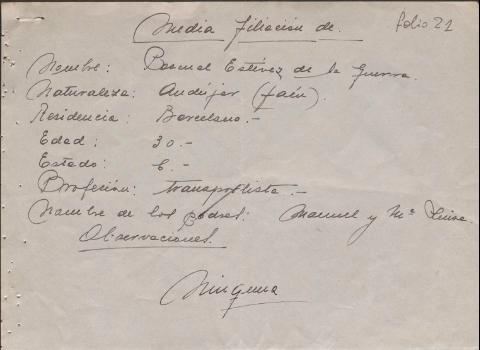 Media filiación de.
folio 21
Nombre: Pascual Estévez de la Guerra.
Naturaleza: Andújar (Jaén).
Residencia: Barcelona.-
Edad: 30.-
Estado: C.-
Profeción: transportista.-
Nombre de los padres: Manuel y Mª Luisa
Observaciones.
Ninguna